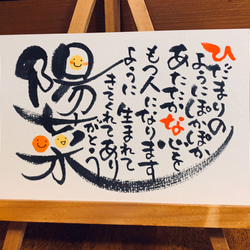 陽菜
ひだまりの
ようにぽかぽか
あたたかな心を
もつ人になります
ように 生まれて
きてくれてあり
がとう